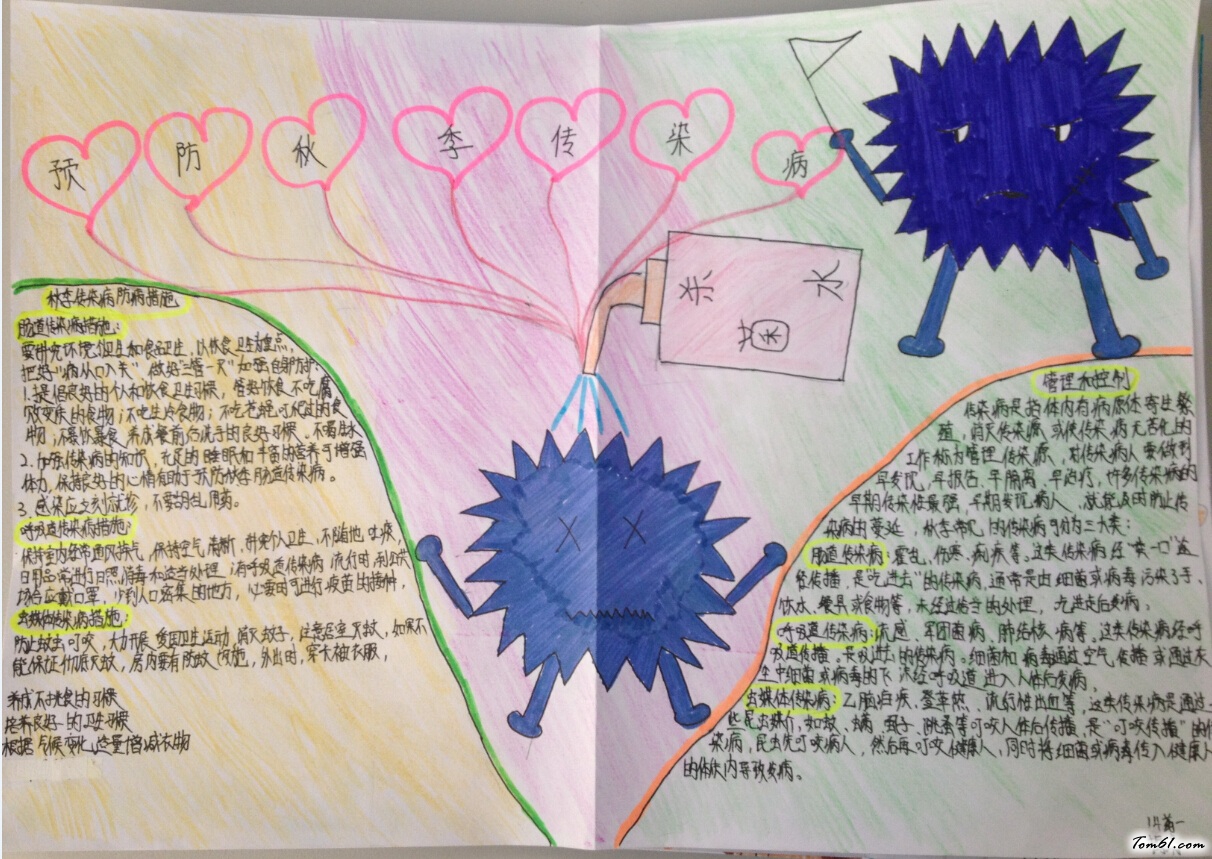 预防秋季传染病
杀菌水
秋季传染病防病措施
肠道传染病措施:
要讲究环境卫生和食品卫生,以饮食卫生为重点,
把好"病从口入关"做好"三管一灭"加强自身防护:
1.提倡良好的个人和饮食卫生习惯,管好饮食不吃腐
败变质的食物;不吃生冷食物;不吃苍蝇叮爬过的食
物;不暴饮暴食,养成餐前后洗手的良好习惯、不喝生水
2.加强传染病的知识,充足的睡眠和丰富的营养于增强
体力,保持良好的心情有助于预防秋季肠道传染病。
3.感染应立刻就诊,不要胡乱用药。
呼吸道传染病措施:
保持室内经常通风换气,保持空气清新,讲究个人卫生,不随地吐痰,
日用品常进行日照消毒和适当处理,有呼吸道传染病流行时,到公共
场合应戴口罩,少到人口密集的地方,必要时可进行疫苗的接种,
虫媒体传染病措施:
防止蚊虫叮咬,大力开展爱国卫生运动,消灭蚊子,注意居室灭蚊,如果不
能保证彻底灭蚊,房内要有防蚊设施,外出时,穿长袖衣服,
养成不挑食的习惯
培养良好的卫生习惯
根据气候变化适量增减衣物
管理和控制
传染病是指体内有病原体寄生繁
殖,消灭传染源或使传染病无害化的
工作称为管理传染源,对传染病人要做到
早发现,早报告、早隔离、早治疗,许多传染病的
早期传染性最强,早期发现病人,就能及时防止传
染病的蔓延,秋季常见的传染病可分为三大类:
肠道传染病:霍乱、伤寒、痢疾等,这类传染病经"粪一口"途
径传播,是"吃进去"的传染病,通常是由细菌或病毒污染了手、
饮水、餐具或食物等,未经过恰当的处理,允进去后发病。
呼吸道传染病:流感、军团菌病、肺结核病等,这类传染病经呼
吸道传播,是吸进去的传染病。细菌和病毒通过空气传播或通过灰
尘中细菌或病毒的飞沫经呼吸道进入人体后发病,
虫媒体传染病:乙脑、疟疾、登革热、流行性出血等,这类传染病是通过一
些昆虫媒介,如蚊、螨、虱子、跳蚤等叮咬人体后传播,是"叮咬传播"的传
染病,昆虫先叮咬病人,然后再叮咬健康人,同时将细菌或病毒传入健康人
的体内导致发病。
Tom61.com